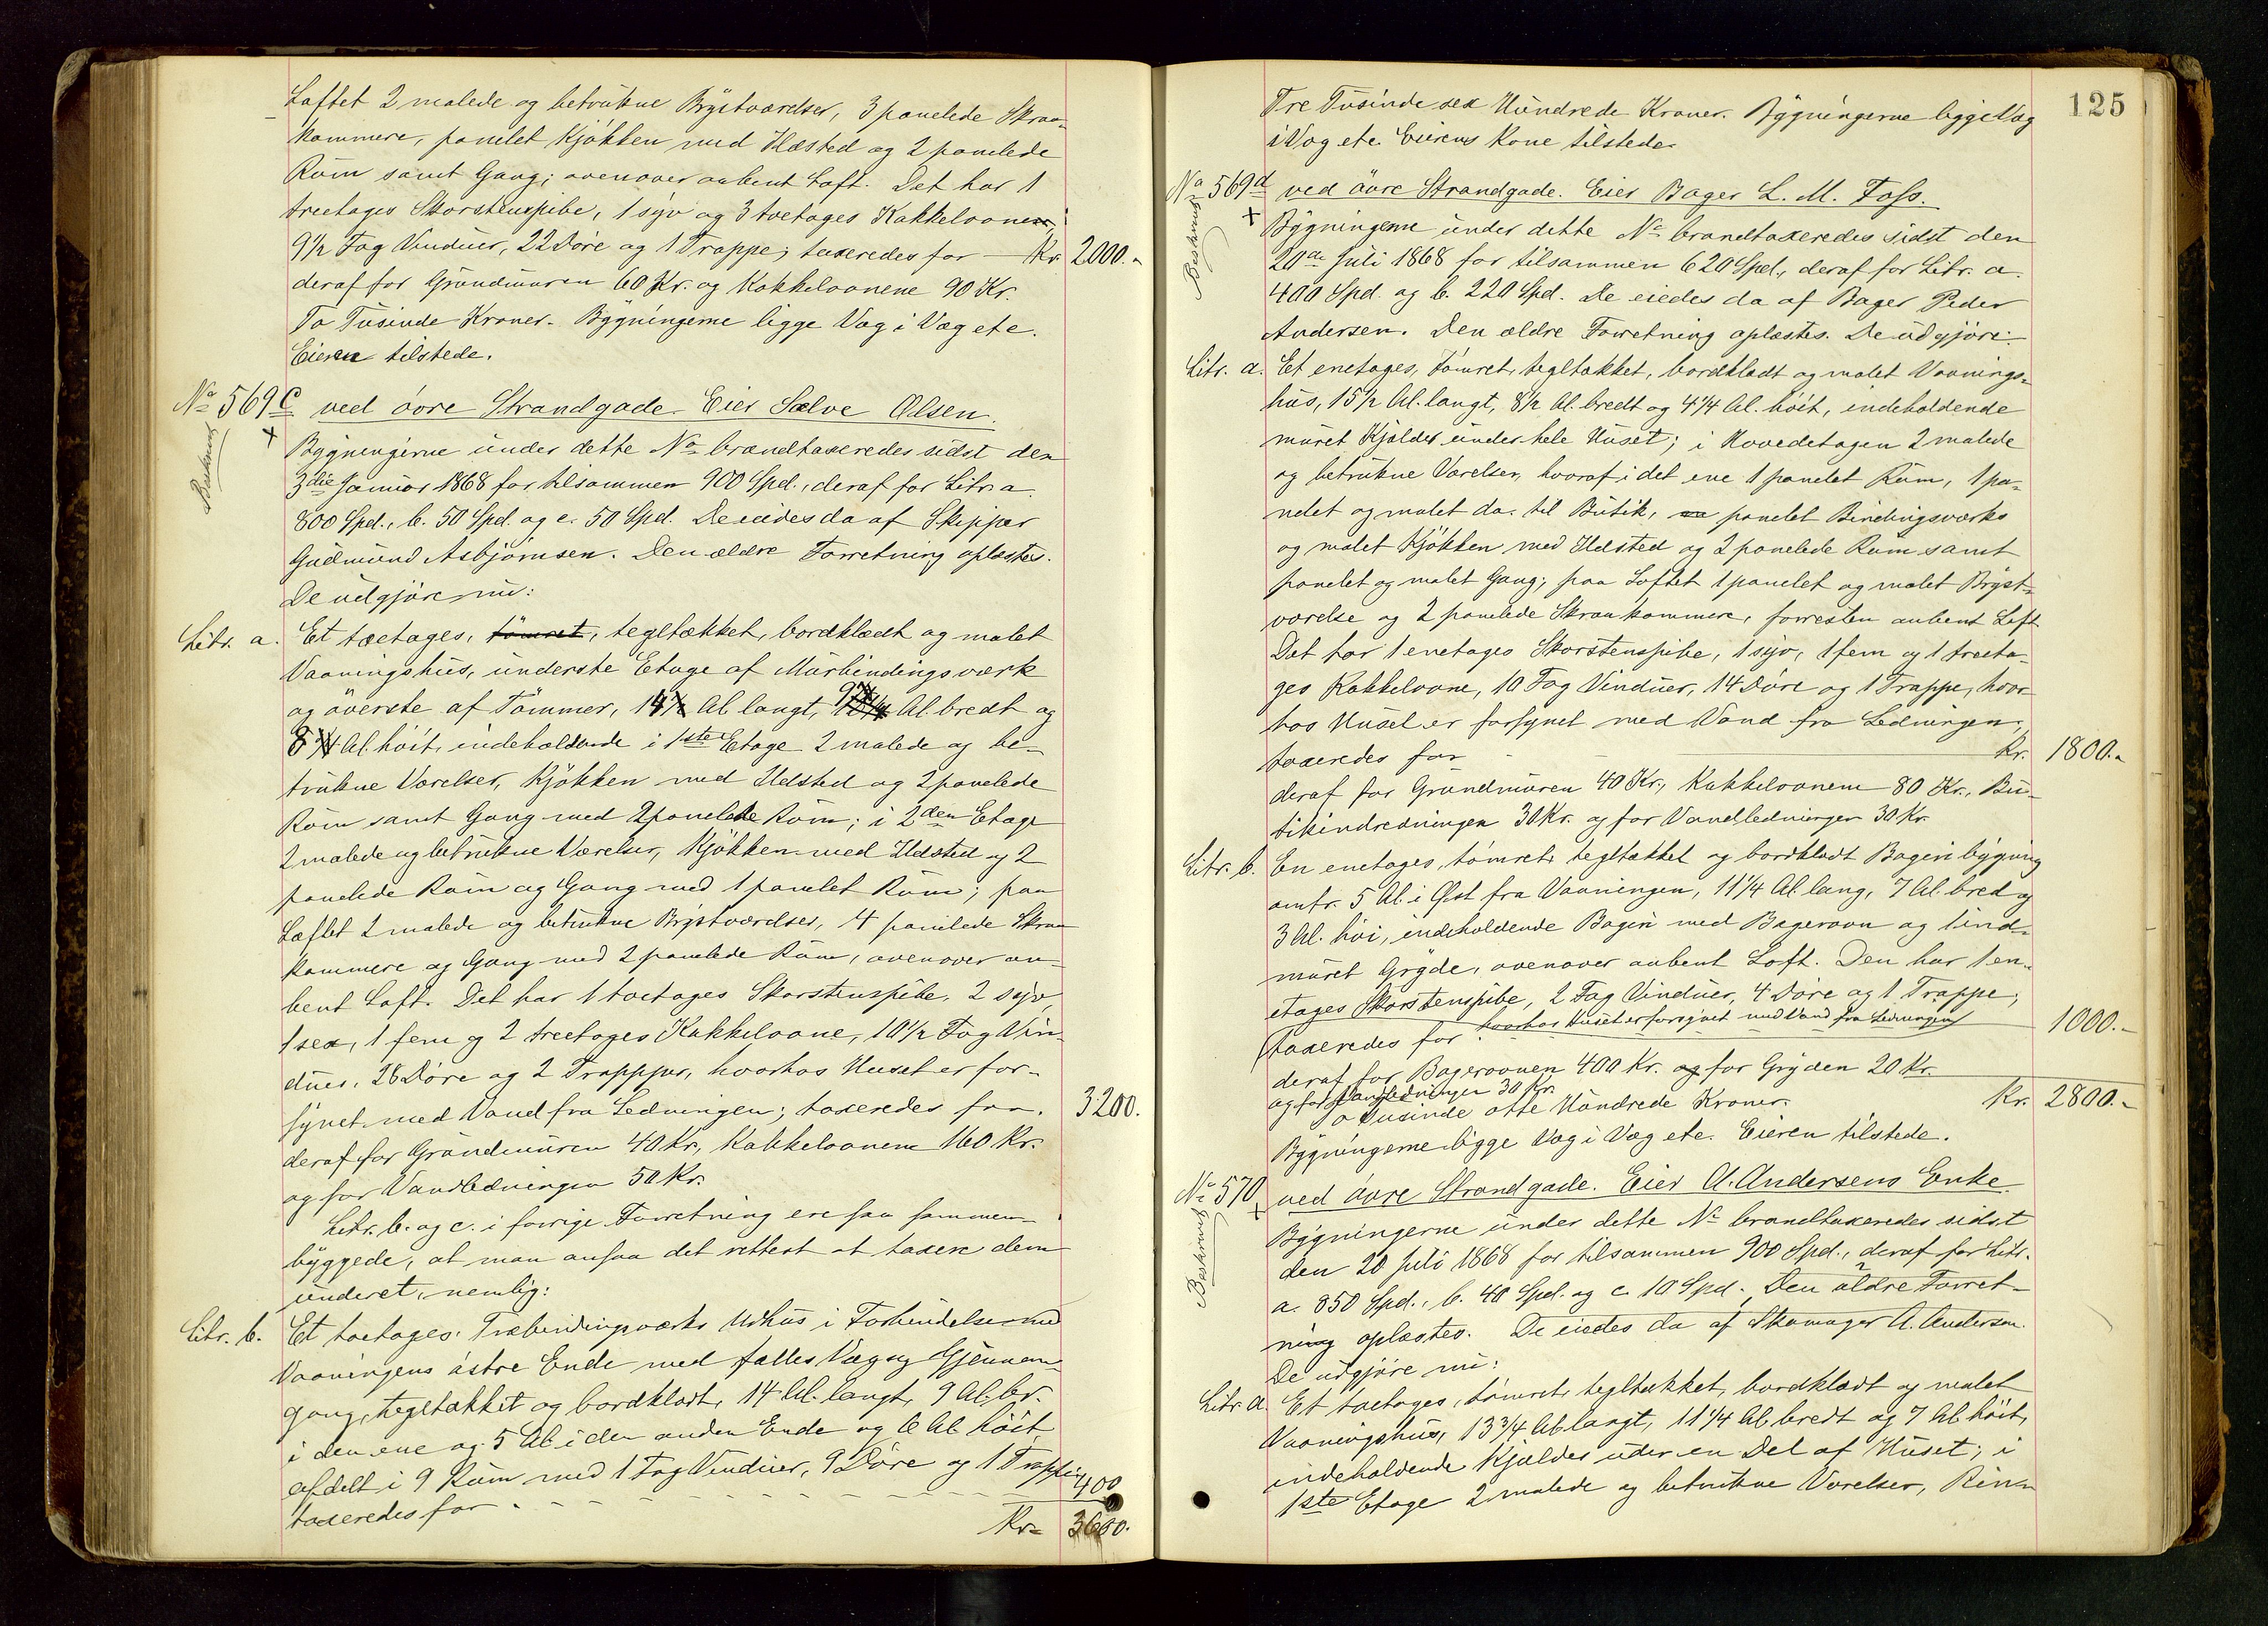 Loftet 2 malede og betrukne Brÿstværelser, 3 panelede Skraa-
kammere, panelet Kjökken med Ildsted og 2 panelede
Rúm samt Gang; ovenover aabent Loft. Det har 1
treetages Skorstenspibe, 1 syv og 3 toetages Kakkelovne,
9½ Fag Vindúer, 22 Döre og 1 Trappe; taxeredes for — Kr. 2000.-
deraf for Grúndmúren 60 Kr. og Kakkelovnene 90 Kr.
To Túsinde Kroner. Bÿgningerne ligge Væg i Væg etc.
Eieren tilstede.
No 569 c ved övre Strandgade. Eier Sælve Olsen.
Beskrivng x
Bygningerne únder dette No brandtaxeredes sidst den
3die Januar 1868 for tilsammen 900 Spd., deraf for Litr. a.
800 Spd., b. 50 Spd. og c. 50 Spd. De eiedes da af Skipper
Gudmund Asbjörnsen. Den ældre Forretning oplæstes.
De údgjöre nú:
Litr. a. Et toetages, tömret, tegltækket, bordklædt og malet
Vaaningshús, únderste Etage af Múrbindingsværk
og överste af Tömmer, 14 Al. langt, 9 Al. bredt og
8 Al. höit, indeholdende i 1ste Etage 2 malede og be-
trukne Værelser, Kjökken med Ildsted og 2 panelede
Rúm samt Gang med 2 panelede Rúm; i 2den Etage
2 malede og betrukne Værelser, Kjökken med Ildsted og 2
panelede Rúm og Gang med 1 panelet Rúm; paa
Loftet 2 malede og betrukne Brÿstværelser, 4 panelede Skraa
kammere og Gang med 2 panelede Rúm, ovenover aa-
bent Loft. Det har 1 toetages Skorstenspibe, 2 syv,
1 sex, 1 fem og 2 treetages Kakkelovne, 10½ Fag Vin-
dúer, 28 Döre og 2 Trapper, hvorhos Huset er for-
synet med Vand fra Ledningen; taxeredes for. 3200.
deraf for Gründmúren 40 Kr., Kakkelovnene 160 Kr.
og for Vandledningen 50 Kr.
Litr. b. og c. i forrige Forretning ere saa sammen-
bÿggede, at man ansaa det rettest at taxere dem
únderet, nemlig:
Litr. b. Et toetages. Træbindingsværks Udhús i Forbindelse med
Vaaningens östre Ende med fælles Væg og Gjennem-
gang, tegltækket og bordklædt, 14 Al. langt, 9 Al. br.
i den ene og 5 Al. i den anden Ende og 6 Al. höit,
afdelt i 9 Rúm med 1 Fag Vindúer, 9 Döre og 1 Trappe,
taxeredes for - - - - 400
Kr. 3600.
125
Tre Túsinde sex Húndrede Kroner. Bÿgningerne ligge Væg
i Væg etc. Eierens Kone tilstede.
No 569 d ved övre Strandgade. Eier Bager L. M. Foss.
Beskrivng x
Bÿgningerne únder dette No brandtaxeredes sidst den
20de Juli 1868 for tilsammen 620 Spd., deraf for Litr. a.
400 Spd. og b. 220 Spd. De eiedes da af Bager Peder
Andersen. Den ældre Forretning oplæstes. De udgjöre:
Litr. a. Et enetages, tömret, tegltækket, bordklædt og malet Vaanings-
hús, 15½ Al. langt, 8½ Al. bredt og 4¼ Al. höit, indeholdende
múret Kjælder únder hele Húset; i Hovedetagen 2 malede
og betrukne Værelser, hvoraf i det ene 1 panelet Rúm, 1 pa-
nelet og malet do. til Bútik, panelet Bindingsværks
og malet Kjökken med Ildsted og 2 panelede Rúm samt
panelet og malet Gang; paa Loftet 1 panelet og malet Brÿst-
værelse og 2 panelede Skraakammere, forresten aabent Loft.
Det har 1 enetages Skorstenspibe, 1 syv, 1 fem og 1 treeta-
ges Kakkelovne, 10 Fag Vindúer, 14 Döre og 1 Trappe, hvor-
hos Húset er forsynet med Vand fra Ledningen;
taxeredes for - Kr. 1800.-
deraf for Gründmúren 40 Kr., Kakkelovnene 80 Kr., Bú-
tikindredningen 30 Kr. og for Vandledningen 30 Kr.
Litr. b. En enetages, tömret, tegltækket og bordklædt Bageribÿgning
omtr. 5 Al. i Öst fra Vaaningen, 11¼ Al. lang, 7 Al. bred og
3 Al. höi, indeholdende Bageri med Bagerovn og 1 ind-
múret Grÿde, ovenover aabent Loft. Den har 1 en-
etages Skorstenspibe, 2 Fag Vindúer, 4 Döre og 1 Trappe,
hvorhos Húset er forsynet med Vand fra Ledningen
taxeredes for 1000.-
deraf for Bagerovnen 400 Kr. og for Grÿden 20 Kr.
og for Vandledningen 30 Kr. Kr. 2800.-
To Túsinde otte Húndrede Kroner.
Bÿgningerne ligge Væg i Væg etc. Eieren tilstede.
No 570 ved övre Strandgade. Eier A. Andersens Enke
Beskrivng x
Bÿgningerne únder dette No brandtaxeredes sidst
den 20 Juli 1868 for tilsammen 900 Spd., deraf for Litr.
a. 850 Spd., b. 40 Spd. og c. 10 Spd. Den ældre Forret-
ning oplæstes. De eiedes da af Skomager A. Andersen.
De údgjöre nú:
Litr. a. Et toetages, tömret, tegltækket, bordklædt og malet
Vaaningshús, 13¾ Al. langt, 11¼ Al. bredt og 7 Al. höit,
indeholdende Kjælder uder en Del af Húset; i
1ste Etage 2 malede og betrukne Værelser,